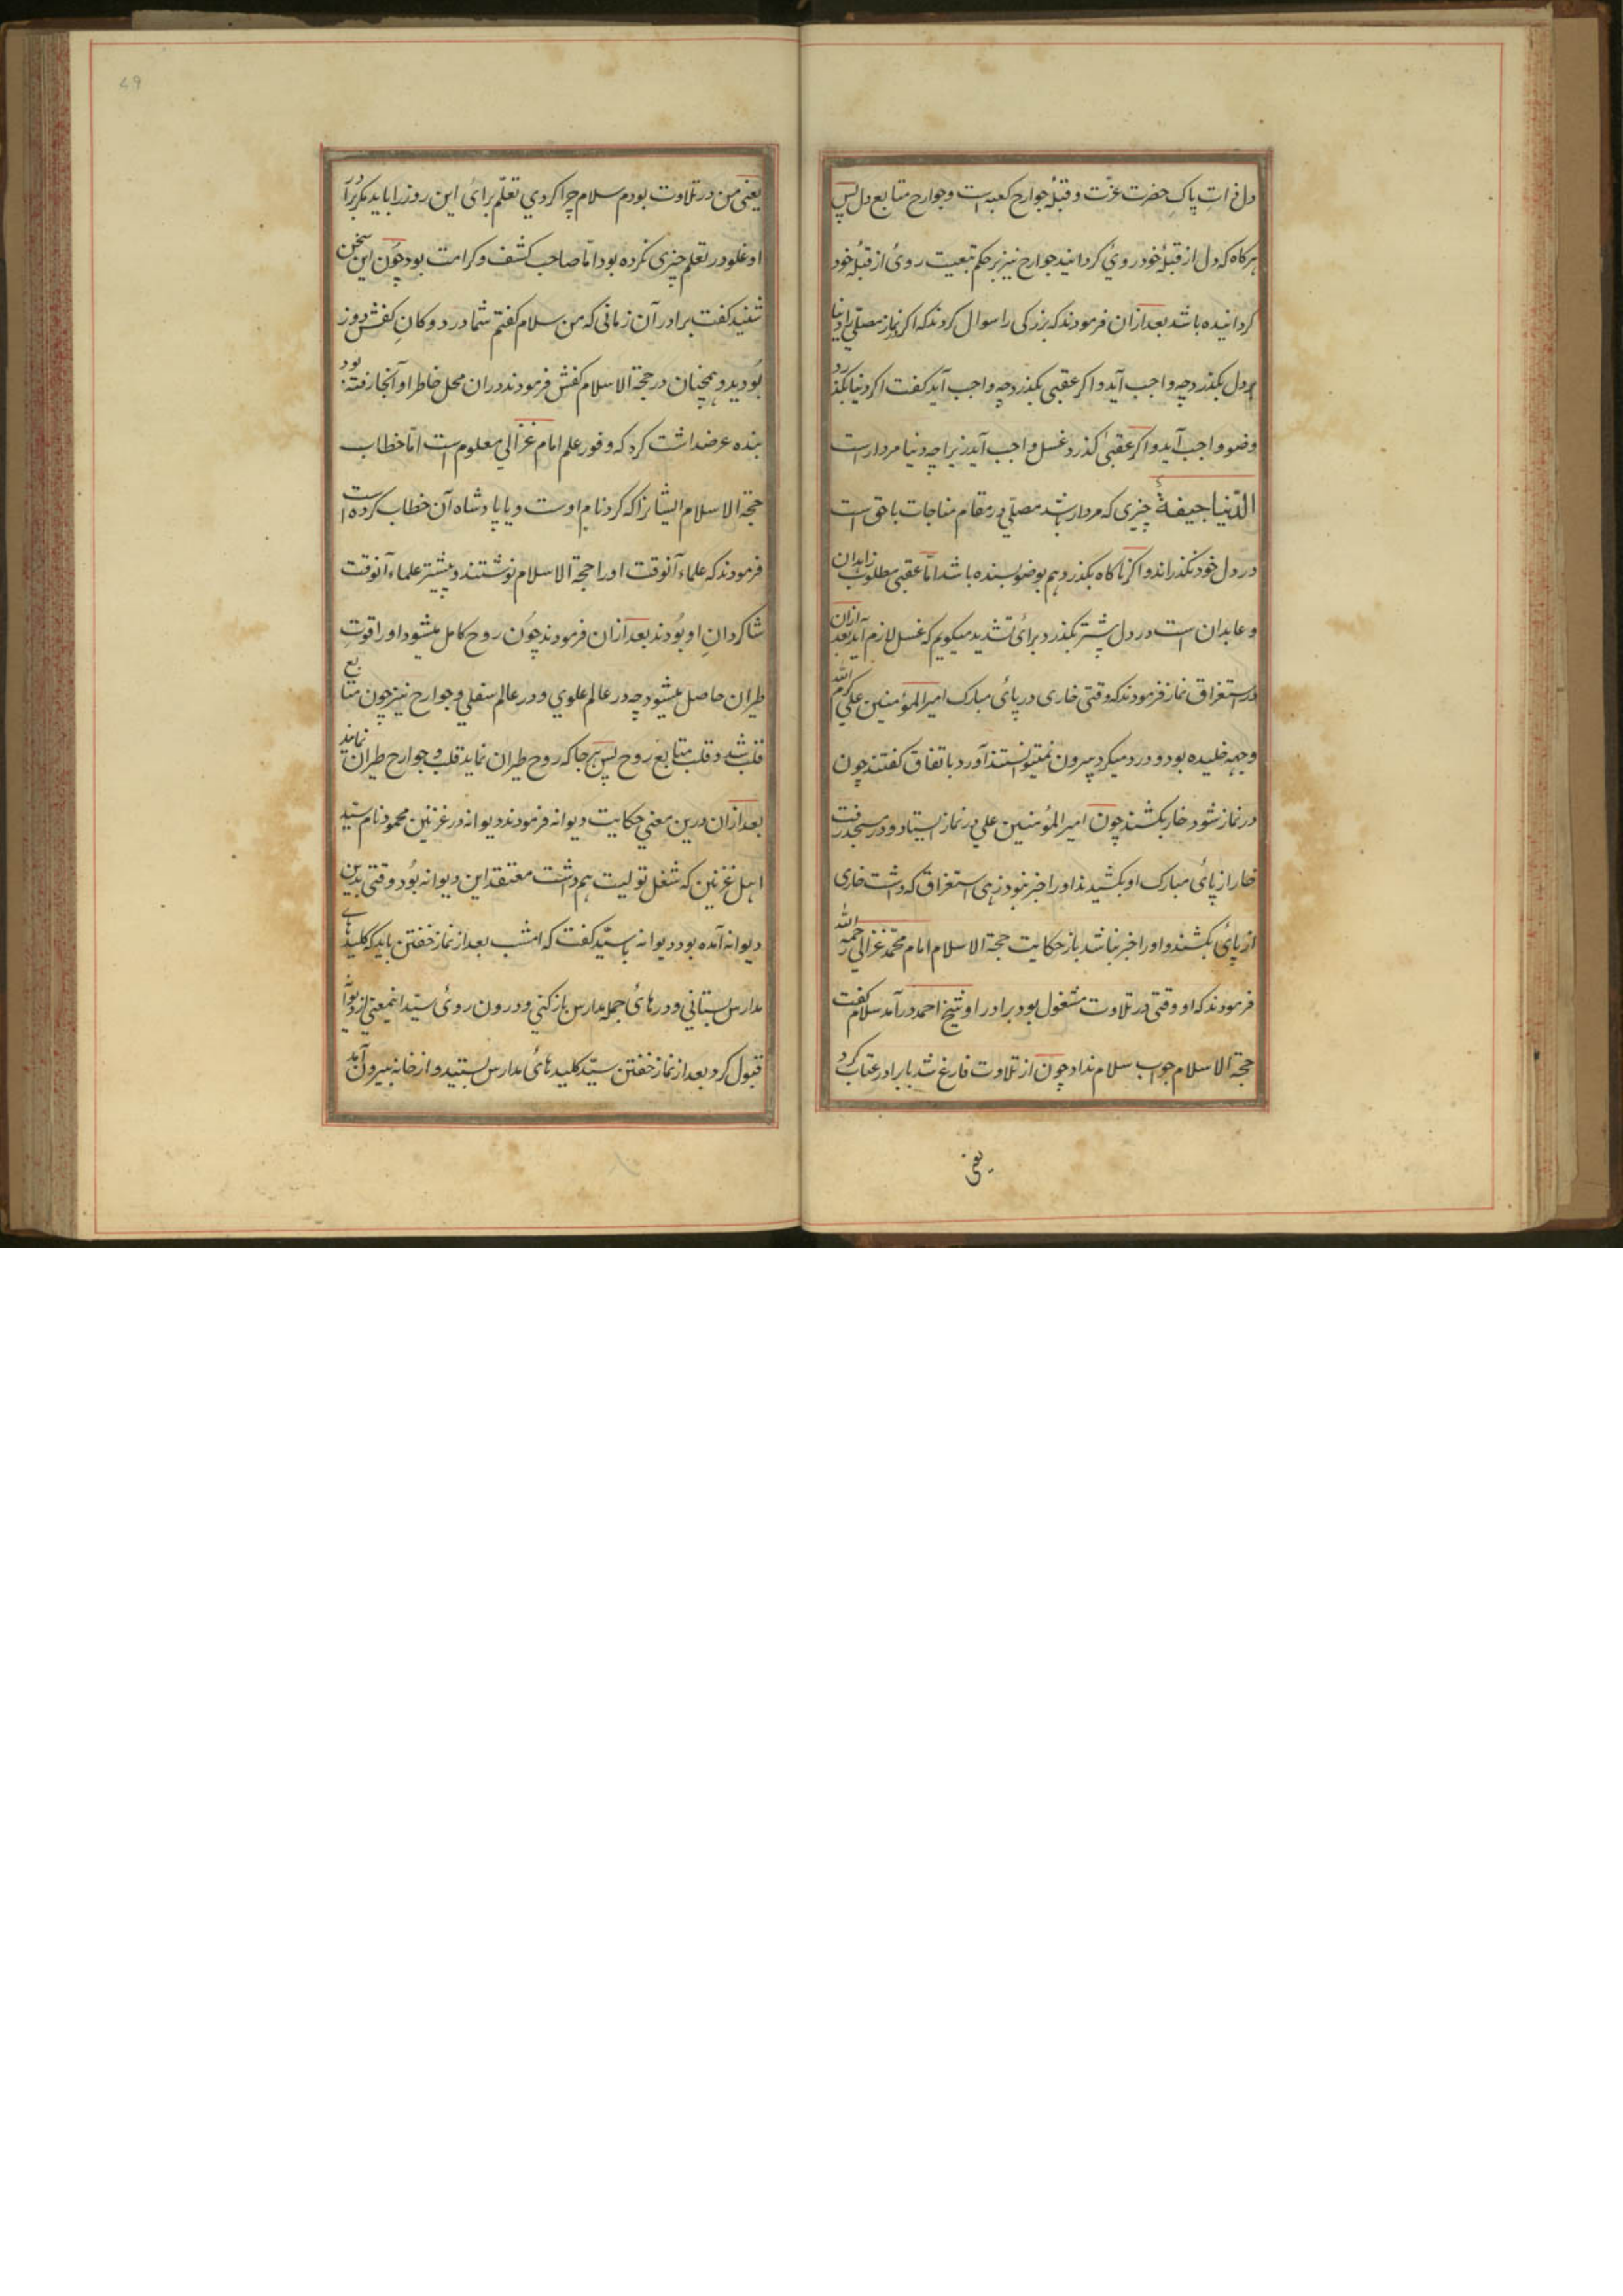 دل ذات پاک حضرت عزّت و قبلهٔ جوارح کعبه است و جوارح متابع دل پس
هرکاه که دل از قبلهٔ خود روی کردانید جوارح نیز بر حکم تبعیت روی از قبلهٔ خود
کردانیده باشد بعد ازان فرمودند که بزرکی را سوال کردند که اکر در نماز مصلّی را دنیا
در دل بکذرد چه واجب آید و اکر عقبی بکذرد چه واجب آید کفت اکر دنیا بکذرد
وضو واجب آید و اکر عقبیٰ کذرد غسل واجب آید زیراچه دنیا مردار است
الدّنیا جیفةٌ چیزی که مردار باشد مصلّی در مقام مناجات با حق است
در دل خود نکذراند و اکر ناکاه بکذرد هم بوضو بسنده باشد امّا عقبی مطلوب زاهدان
و عابدان است در دل بیشتر بکذرد برای تشدید میکویم که غسل لازم آید بعد ازان
در استغراق نماز فرمودند که وقتی خاری در پای مبارک امیرالمؤمنین علی کرم الله
وجهه خلیده بود و درد میکرد بیرون نمیتوانستند آورد باتفاق کفتند چون
در نماز شود خار بکشند چون امیرالمؤمنین علی در نماز ایستاد و در سجده رفت
خار از پای مبارک او بکشیدند او را خبر نبود زهی استغراق که داشت خاری
از پای بکشند و او را خبر نباشد باز حکایت حجة الاسلام امام محمّد غزالی رحمه الله
فرمودند که او وقتی در تلاوت مشغول بود برادر او شیخ احمد درآمد سلام کفت
حجة الاسلام جواب سلام نداد چون از تلاوت فارغ شد با برادر عتاب کرد
یعنی
49
یعنی من در تلاوت بودم سلام چرا کردی تعلّم برای این روز را باید مکر برادر
او غلو در تعلم چیزی نکرده بود امّا صاحب کشف و کرامت بود چون این سخن
شنید کفت برادر آن زمانی که من سلام کفتم شما در دوکان کفش دوز
بودید و همچنان در حجة الاسلام کفش فرمودند دران محل خاطر او آنجا رفته بود
بنده عرضداشت کرد که وفور علم امام غزالی معلوم است امّا خطاب
حجة الاسلام ایشانرا که کرد نام اوست و یا پادشاه آن خطاب کرده است
فرمودند که علماء آنوقت او را حجة الاسلام نوشتند و بیشتر علماء آنوقت
شاکردان او بودند بعد ازان فرمودند چون روح کامل میشود او را قوت
طیران حاصل میشود چه در عالم علوی و در عالم سفلی و جوارح نیز چون متابع
قلب شد و قلب متابع روح پس هرجا که روح طیران نماید قلب و جوارح طیران نمایند
بعد ازان درین معنی حکایت دیوانه فرمودند دیوانه در غزنین محمود نام سید
اهل غزنین که شغل تولیت هم داشت معتقد این دیوانه بود وقتی بدین
دیوانه آمده بود دیوانه با سیّد کفت که امشب بعد از نماز خفتن باید که کلیدهای
مدارس بستانی و درهای جمله مدارس باز کنی و درون روی سید اینمعنی از دیوانه
قبول کرد بعد از نماز خفتن سیّد کلیدهای مدارس بستید و از خانه بیرون آمد